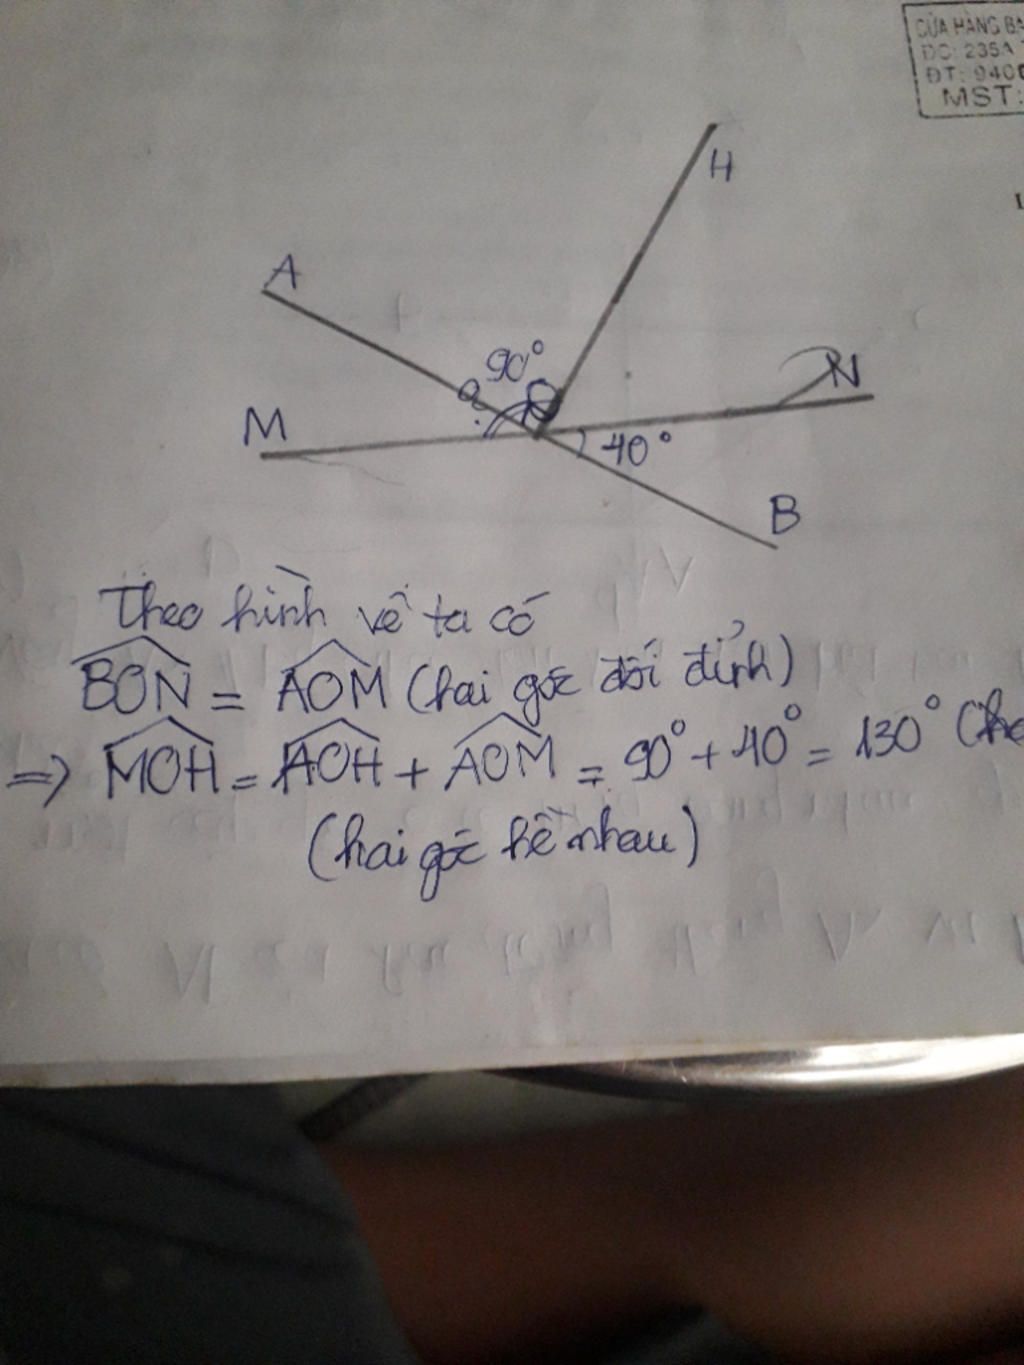 CỬA HÀNG BA
ĐC: 235A
ĐT: 940
MST:
H
A
90°
N
M
?
40°
B
Theo hình vẽ ta có
BON = AOM (hai góc đối đỉnh)
=> MOH = AOH + AOM = 90° + 40° = 130° (ha
(hai góc kề nhau)